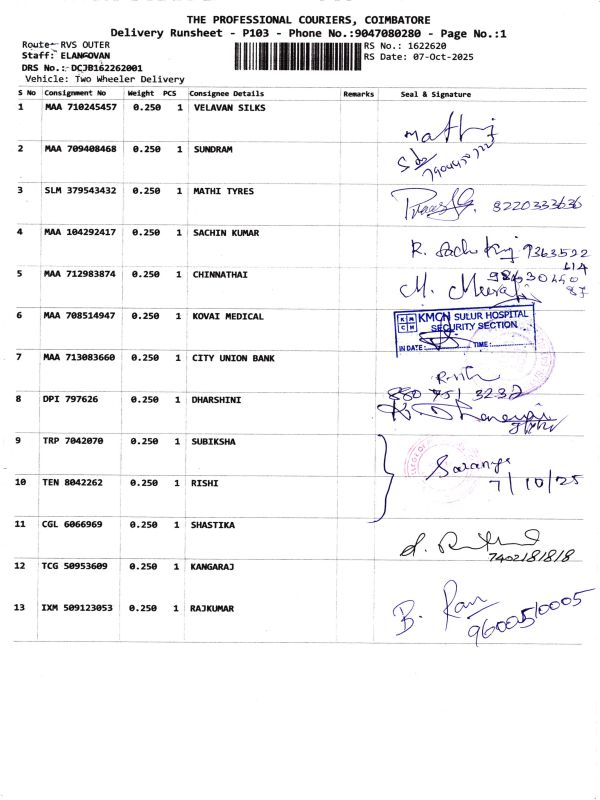 THE PROFESSIONAL COURIERS, COIMBATORE
Delivery Runsheet - P103 - Phone No.:9047080280 - Page No.:1
Route:- RVS OUTER
RS No.: 1622620
Staff: ELANGOVAN
RS Date: 07-Oct-2025
DRS No.:- DCJB162262001
Vehicle: Two Wheeler Delivery
S No Consignment No Weight PCS Consignee Details Remarks Seal & Signature
1 MAA 710245457 0.250 1 VELAVAN SILKS
2 MAA 709408468 0.250 1 SUNDRAM
3 SLM 379543432 0.250 1 MATHI TYRES
8220333636
4 MAA 104292417 0.250 1 SACHIN KUMAR
R. 9363522
414
5 MAA 712983874 0.250 1 CHINNATHAI
M.
87
6 MAA 708514947 0.250 1 KOVAI MEDICAL
KMCH SULUR HOSPITAL
SECURITY SECTION
IN DATE: TIME:
7 MAA 713083660 0.250 1 CITY UNION BANK
8 DPI 797626 0.250 1 DHARSHINI
880 751 3232
9 TRP 7042070 0.250 1 SUBIKSHA
Saranya
10 TEN 8042262 0.250 1 RISHI
7/10/25
11 CGL 6066969 0.250 1 SHASTIKA
7402181818
12 TCG 50953609 0.250 1 KANGARAJ
13 IXM 509123053 0.250 1 RAJKUMAR
B. Ram
9600510005